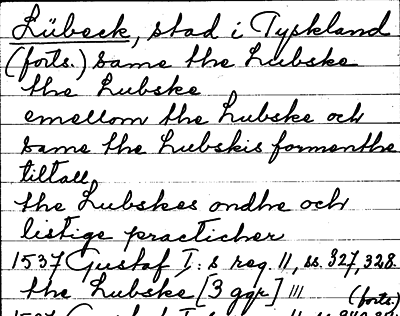 Lübeck, stad i Tyskland
(forts.) same the Lubske
the Lubske
emellom the Lubske och
same the Lubskis formenthe
tiltall
the Lubskes ondhe och
listige practicher
1537 Gustaf I:s reg. 11, ss. 327, 328
the Lubske [3 ggr] 111
(forts.)